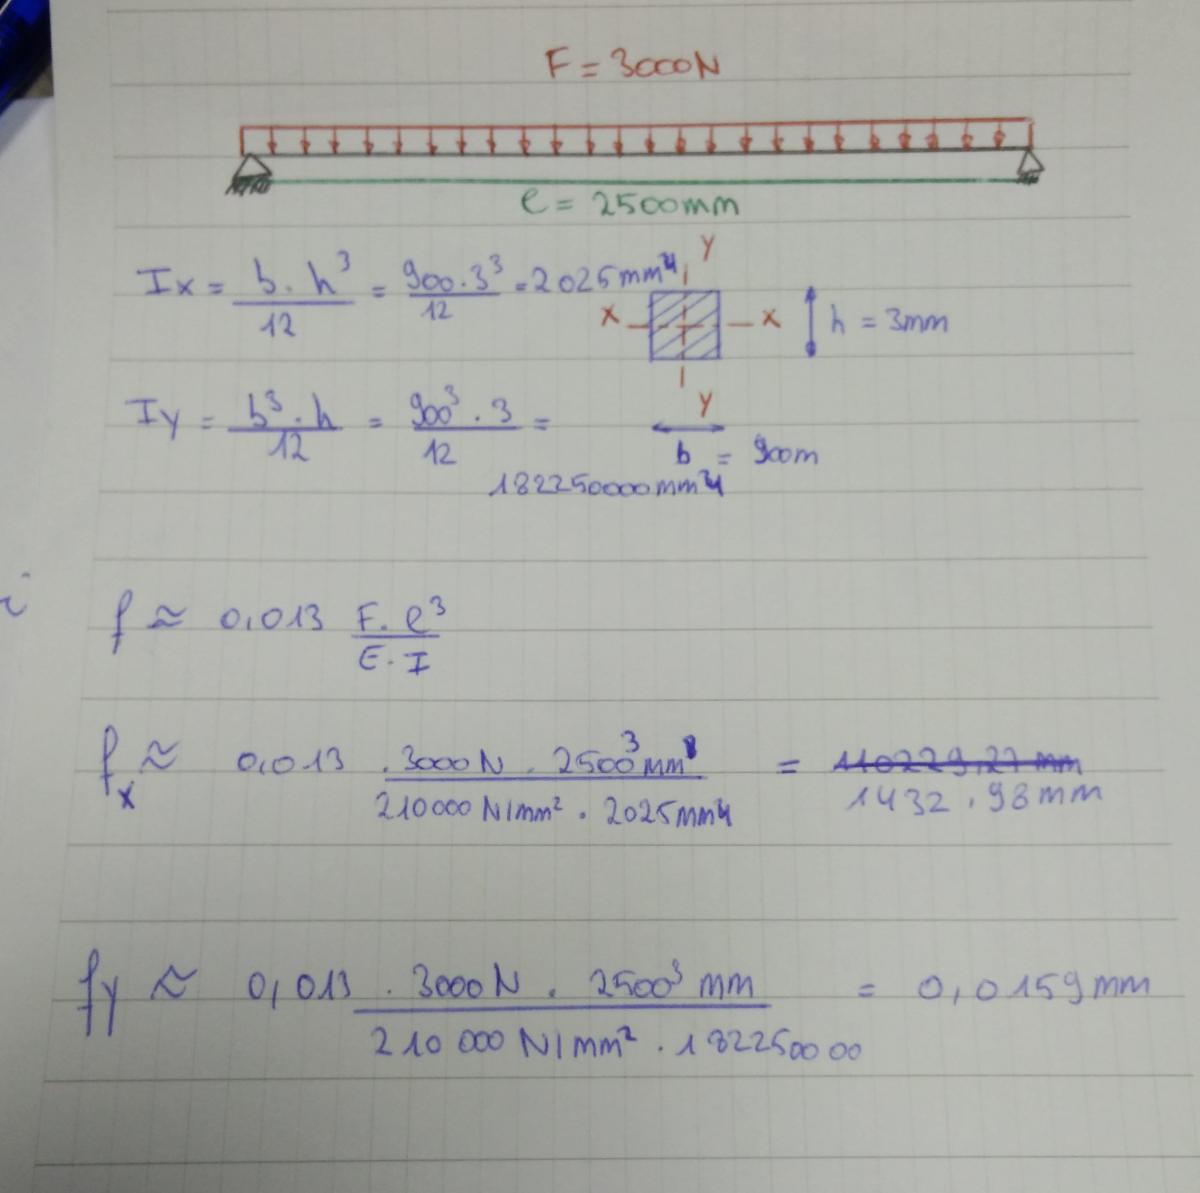 F = 3000N
l = 2500mm
Ix = b . h³ / 12 = 900 . 3³ / 12 = 2025mm⁴
y
x x
h = 3mm
y
b = 900m
Iy = b³ . h / 12 = 900³ . 3 / 12 =
182250000mm⁴
f ≈ 0,013 F. l³ / E. I
fx ≈ 0,013 . 3000N . 2500³mm / 210000 N/mm² . 2025mm⁴ = 110229,27 mm
1432,98mm
fy ≈ 0,013 . 3000N . 2500³ mm / 210 000 N/mm² . 182250000 = 0,0159mm